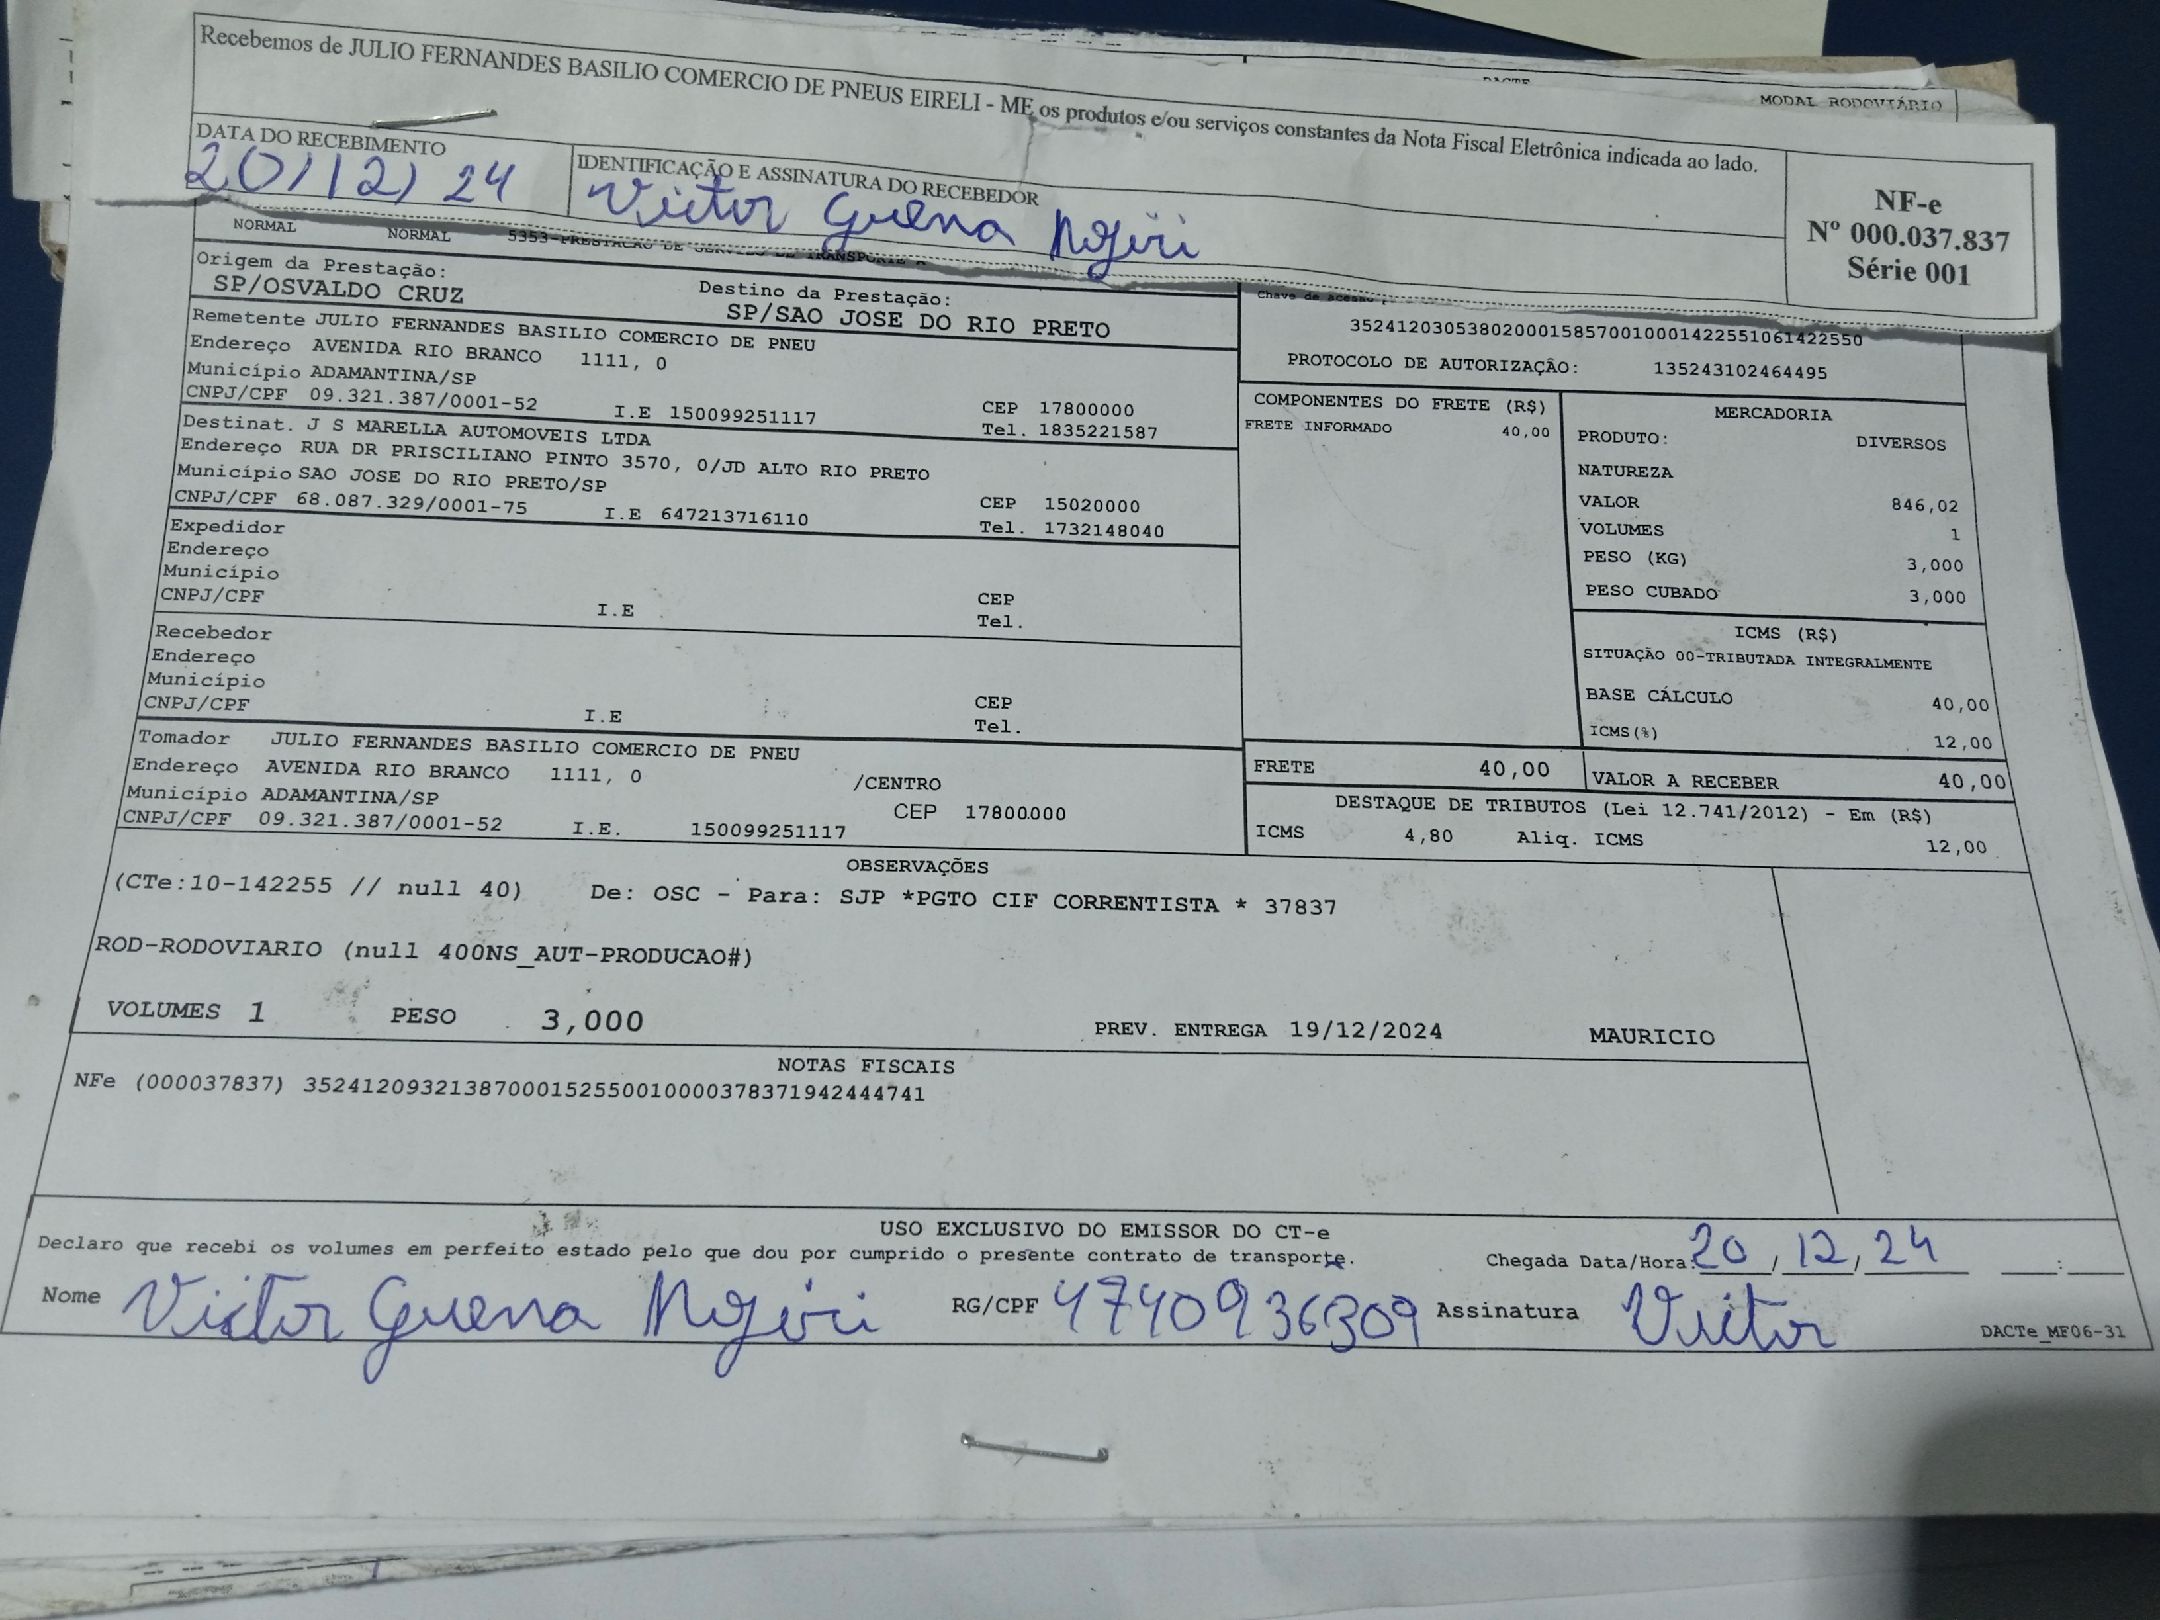 Recebemos de JULIO FERNANDES BASILIO COMERCIO DE PNEUS EIRELI - ME os produtos e/ou serviços constantes da Nota Fiscal Eletrônica indicada ao lado.
MODAL RODOVIÁRIO
DATA DO RECEBIMENTO
20/12/24
IDENTIFICAÇÃO E ASSINATURA DO RECEBEDOR
Victor Guerra
NF-e
Nº 000.037.837
Série 001
NORMAL NORMAL 5353-PRESTACAO DE SERVICO DE TRANSPORTE A
Origem da Prestação:
SP/OSVALDO CRUZ
Destino da Prestação:
SP/SAO JOSE DO RIO PRETO
Chave de acesso
35241203053802000158570010001422551061422550
PROTOCOLO DE AUTORIZAÇÂO: 135243102464495
Remetente JULIO FERNANDES BASILIO COMERCIO DE PNEU
Endereço AVENIDA RIO BRANCO 1111, 0
Município ADAMANTINA/SP
CNPJ/CPF 09.321.387/0001-52 I.E 150099251117
CEP 17800000
Tel. 1835221587
Destinat. J S MARELLA AUTOMOVEIS LTDA
Endereço RUA DR PRISCILIANO PINTO 3570, 0/JD ALTO RIO PRETO
Município SAO JOSE DO RIO PRETO/SP
CNPJ/CPF 68.087.329/0001-75 I.E 647213716110
CEP 15020000
Tel. 1732148040
Expedidor
Endereço
Município
CNPJ/CPF I.E
CEP
Tel.
Recebedor
Endereço
Município
CNPJ/CPF I.E
CEP
Tel.
Tomador JULIO FERNANDES BASILIO COMERCIO DE PNEU
Endereço AVENIDA RIO BRANCO 1111, 0 /CENTRO
Município ADAMANTINA/SP CEP 17800000
CNPJ/CPF 09.321.387/0001-52 I.E. 150099251117
COMPONENTES DO FRETE (R$)
FRETE INFORMADO 40,00
MERCADORIA
PRODUTO: DIVERSOS
NATUREZA
VALOR 846,02
VOLUMES 1
PESO (KG) 3,000
PESO CUBADO 3,000
ICMS (R$)
SITUAÇÃO 00-TRIBUTADA INTEGRALMENTE
BASE CÁLCULO 40,00
ICMS(%) 12,00
FRETE 40,00 VALOR A RECEBER 40,00
DESTAQUE DE TRIBUTOS (Lei 12.741/2012) - Em (R$)
ICMS 4,80 Aliq. ICMS 12,00
OBSERVAÇÕES
(CTe:10-142255 // null 40) De: OSC - Para: SJP *PGTO CIF CORRENTISTA * 37837
ROD-RODOVIARIO (null 400NS_AUT-PRODUCAO#)
VOLUMES 1 PESO 3,000 PREV. ENTREGA 19/12/2024 MAURICIO
NOTAS FISCAIS
NFe (000037837) 35241209321387000152550010000378371942444741
USO EXCLUSIVO DO EMISSOR DO CT-e
Declaro que recebi os volumes em perfeito estado pelo que dou por cumprido o presente contrato de transporte. Chegada Data/Hora: 20/12/24 :
Nome Victor Guerra RG/CPF 4740936309 Assinatura Victor
DACTe_MF06-31